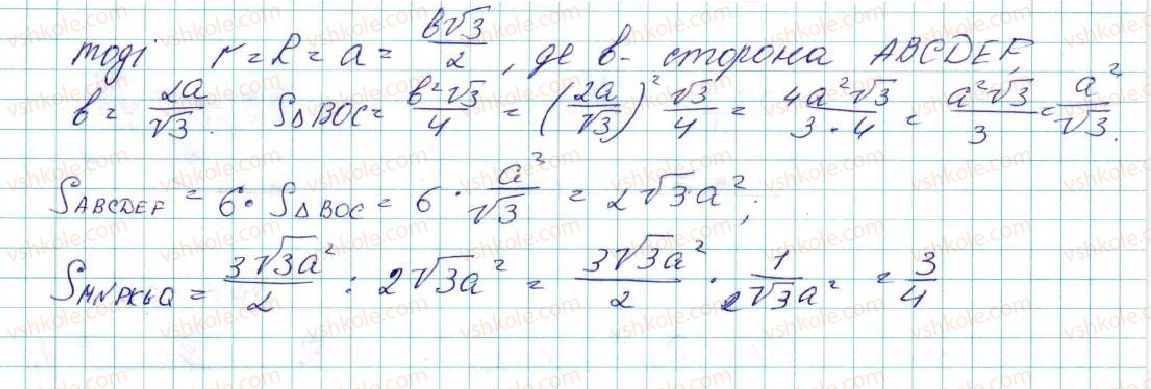 тоді r = R = a = в√3/2, де в - сторона ABCDEF,
в = 2a/√3. S△BOC = в²√3/4 = (2a/√3)² √3/4 = 4a²√3/3·4 = a²√3/3 = a²/√3.
SABCDEF = 6·S△BOC = 6 · a²/√3 = 2√3a²;
SMNPKLQ = 3√3a²/2 : 2√3a² = 3√3a²/2 · 1/2√3a² = = 3/4